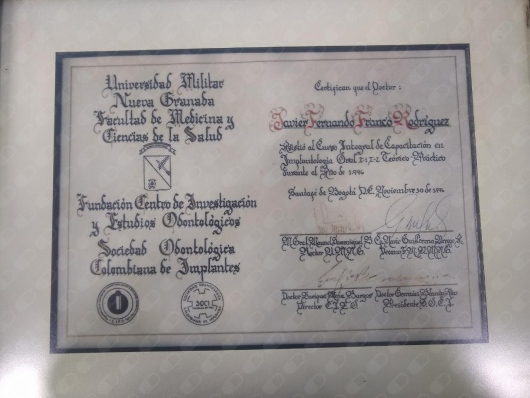 Universidad Militar
Nueva Granada
Facultad de Medicina y
Ciencias de la Salud
Fundación Centro de Investigación
y Estudios Odontológicos
Sociedad Odontológica
Colombiana de Implantes
Certifican que el Doctor :
Javier Fernando Franco Rodríguez
Asistió al Curso Integral de Capacitación en
Implantología Oral Teórico Práctico
Durante el Año de 1994
Santafé de Bogotá D.C. Noviembre 30 de 1994
Rector U.M.N.G.
Doctor Enrique
Director C.I.E.O.
Doctor Germán
Presidente S.O.C.I.